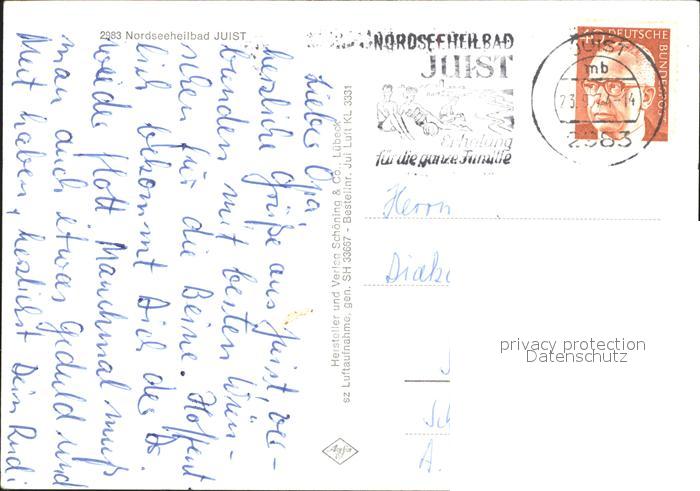 2983 Nordseeheilbad JUIST
NORDSEEHEILBAD
JUIST
Erholung
für die ganze Familie
JUIST
mb
23.9.
-14
2983
DEUTSCHE BUNDESPOST
Lieber Opa,
herzliche Grüße aus Juist, ver-
bunden mit besten Wün-
schen für die Beine. Hoffent
lich bekommt Dich der Dr.
wieder flott. Manchmal muß
man auch etwas Geduld und
Mut haben, herzlichst Dein Rudi
Hersteller und Verlag Schöning & Co., Lübeck
sz Luftaufnahme, gen. SH 33667 - Bestellnr. Jui Luft KL 3331
Agfa
Herrn
Diak
Sch
A.
privacy protection
Datenschutz